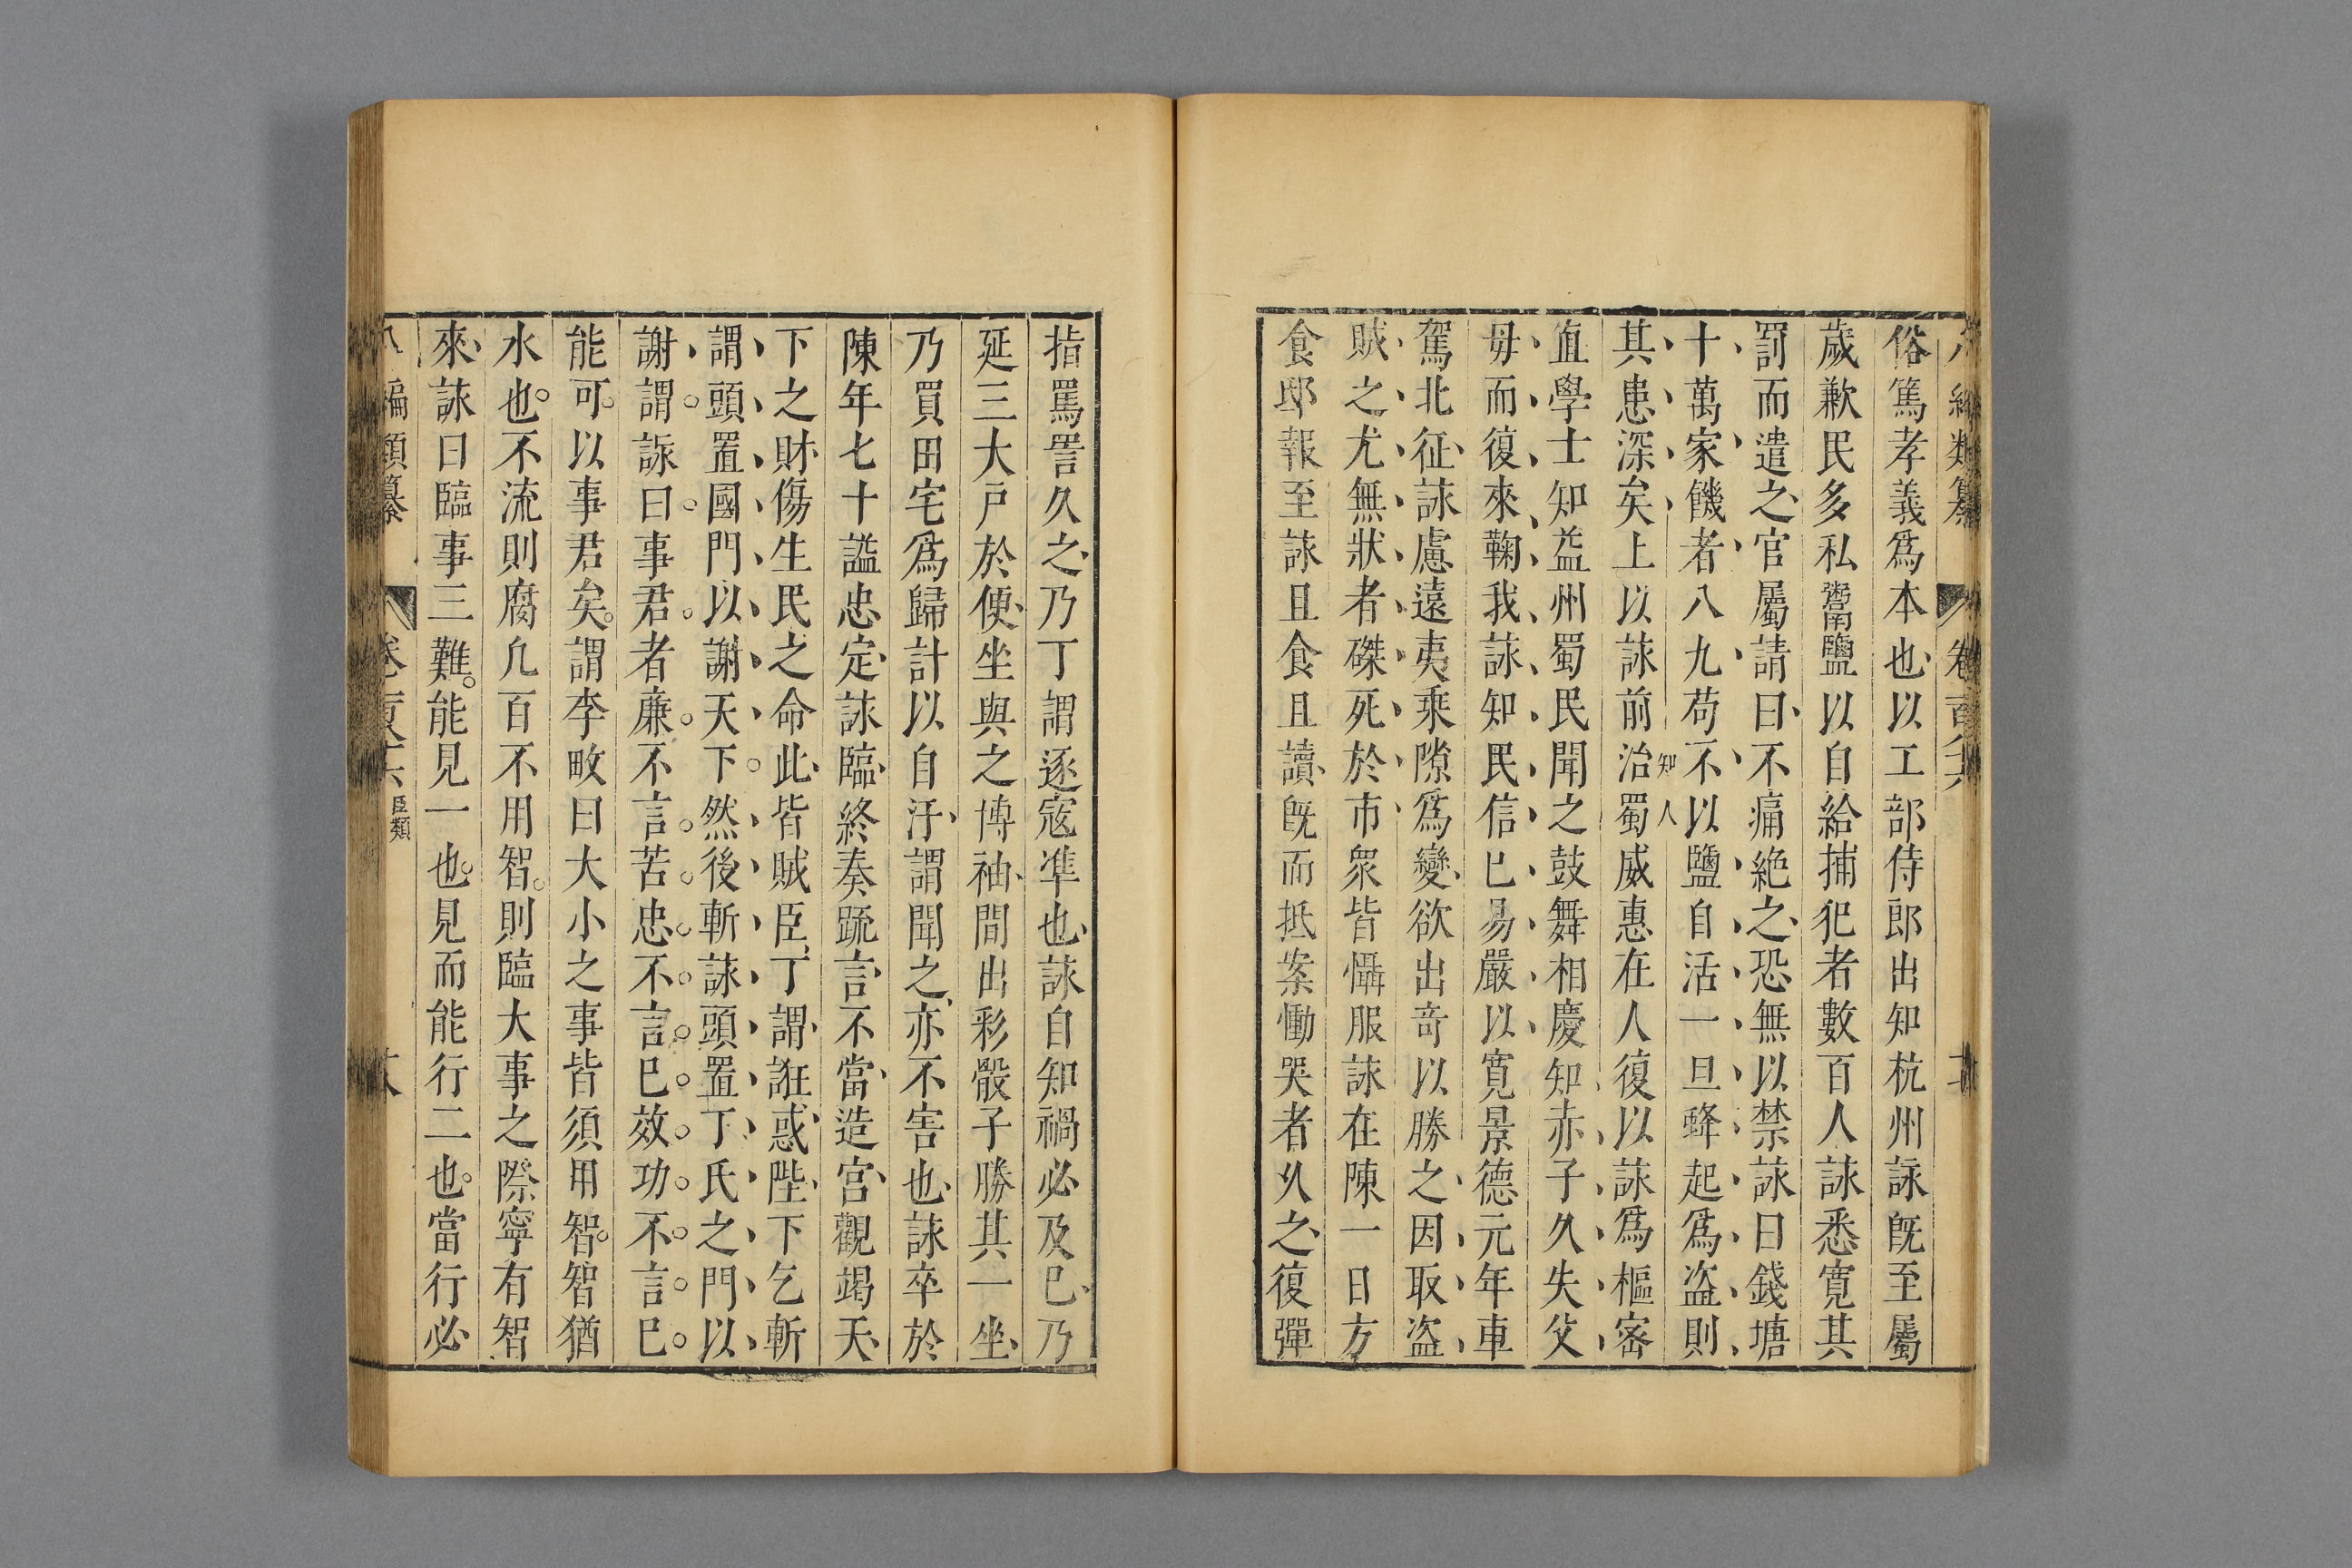 俗篤孝義爲本也以工部侍郎出知杭州詠旣至屬
歲歉民多私鬻鹽以自給捕犯者數百人詠悉寬其
罰而遣之官屬請曰不痛絶之恐無以禁詠曰錢塘
十萬家饑者八九苟不以鹽自活一旦蜂起爲盜則
其患深矣上以詠前治蜀威惠在人復以詠爲樞密
知人
直學士知益州蜀民聞之鼓舞相慶知赤子久失父
毋而復來鞠我詠知民信已易嚴以寬景德元年車
駕北征詠慮遠夷乘隙爲變欲出奇以勝之因取盜
賊之尤無狀者磔死於市衆皆懾服詠在陳一日方
食邸報至詠且食且讀旣而抵案慟哭者乆之復彈
指罵詈久之乃丁謂逐寇準也詠自知禍必及巳乃
延三大戸於便坐與之博袖間出彩骰子勝其一坐
乃買田宅爲歸計以自汙謂聞之亦不害也詠卒於
陳年七十謚忠定詠臨終奏䟽言不當造宫觀竭天
下之財傷生民之命此皆賊臣丁謂誑惑陛下乞斬
謂頭置國門以謝天下然後斬詠頭置丁氏之門以
謝謂詠曰事君者廉不言苦忠不言巳效功不言巳
能可以事君矣謂李畋曰大小之事皆須用智智猶
水也不流則腐凢百不用智則臨大事之際寧有智
來詠曰臨事三難能見一也見而能行二也當行必
編類纂
卷百六 臣類